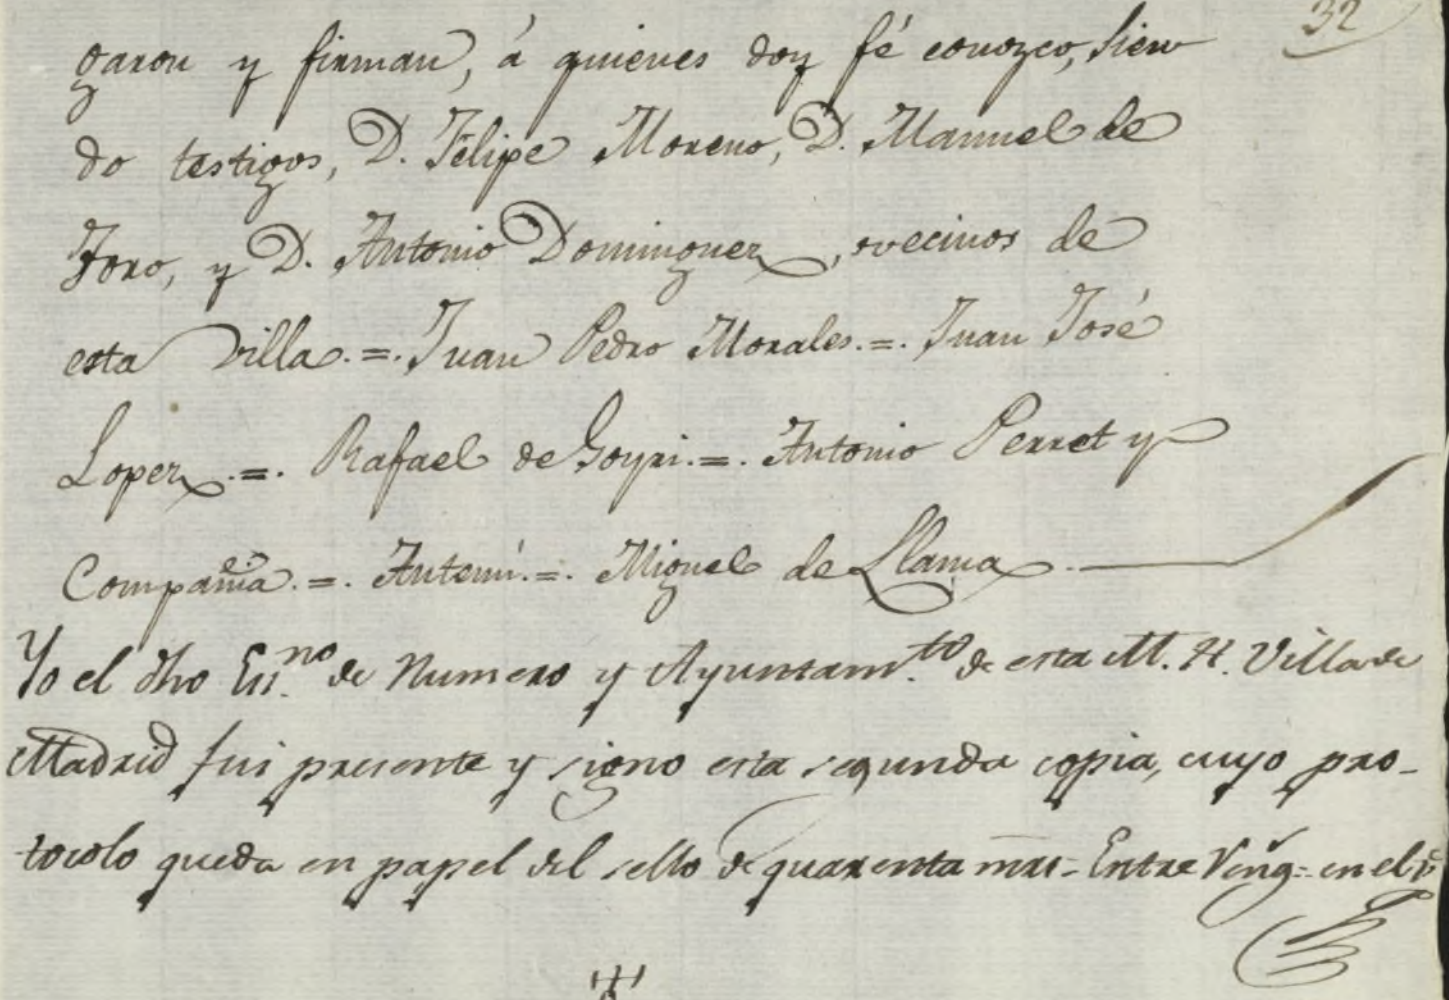 32
garon y firman, á quienes doy fé conozco, sien
do testigos, D. Felipe Moreno, D. Manuel de
Toro, y D. Antonio Dominguez, vecinos de
esta villa.=. Juan Pedro Morales.=. Juan José
Lopez.=. Rafael de Goyri.=. Antonio Perret y
Compañia.=. Antemí.=. Miguel de Llama.
Yo el dho Es.no de Numero y Ayuntam.to de esta M. H. Villa de
Madrid fui presente y signo esta segunda copia, cuyo pro-
tocolo queda en papel del sello de quarenta mrs= Entre Reng.= en el